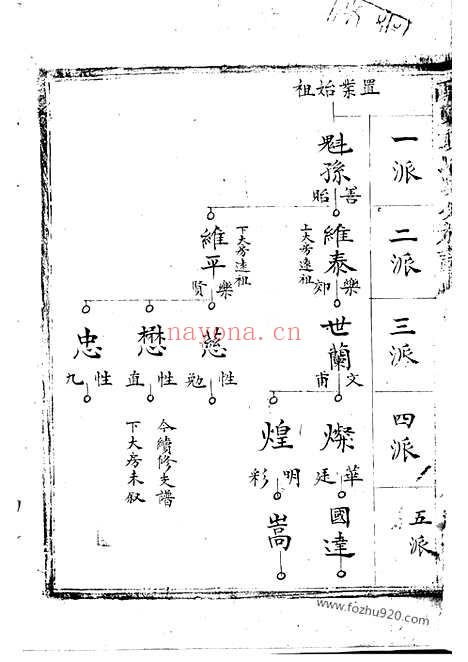 置業始祖
一派
魁孫
善
貽
二派
維泰
樂
郊
上大房遠祖
維平
樂
賢
下大房遠祖
三派
世蘭
文
甫
慈
性
勉
懋
性
直
忠
性
九
四派
燦
華
廷
煌
明
彩
今續修支譜
下大房未敘
五派
國達
嵩
nayona.cn
www.fozhu920.com